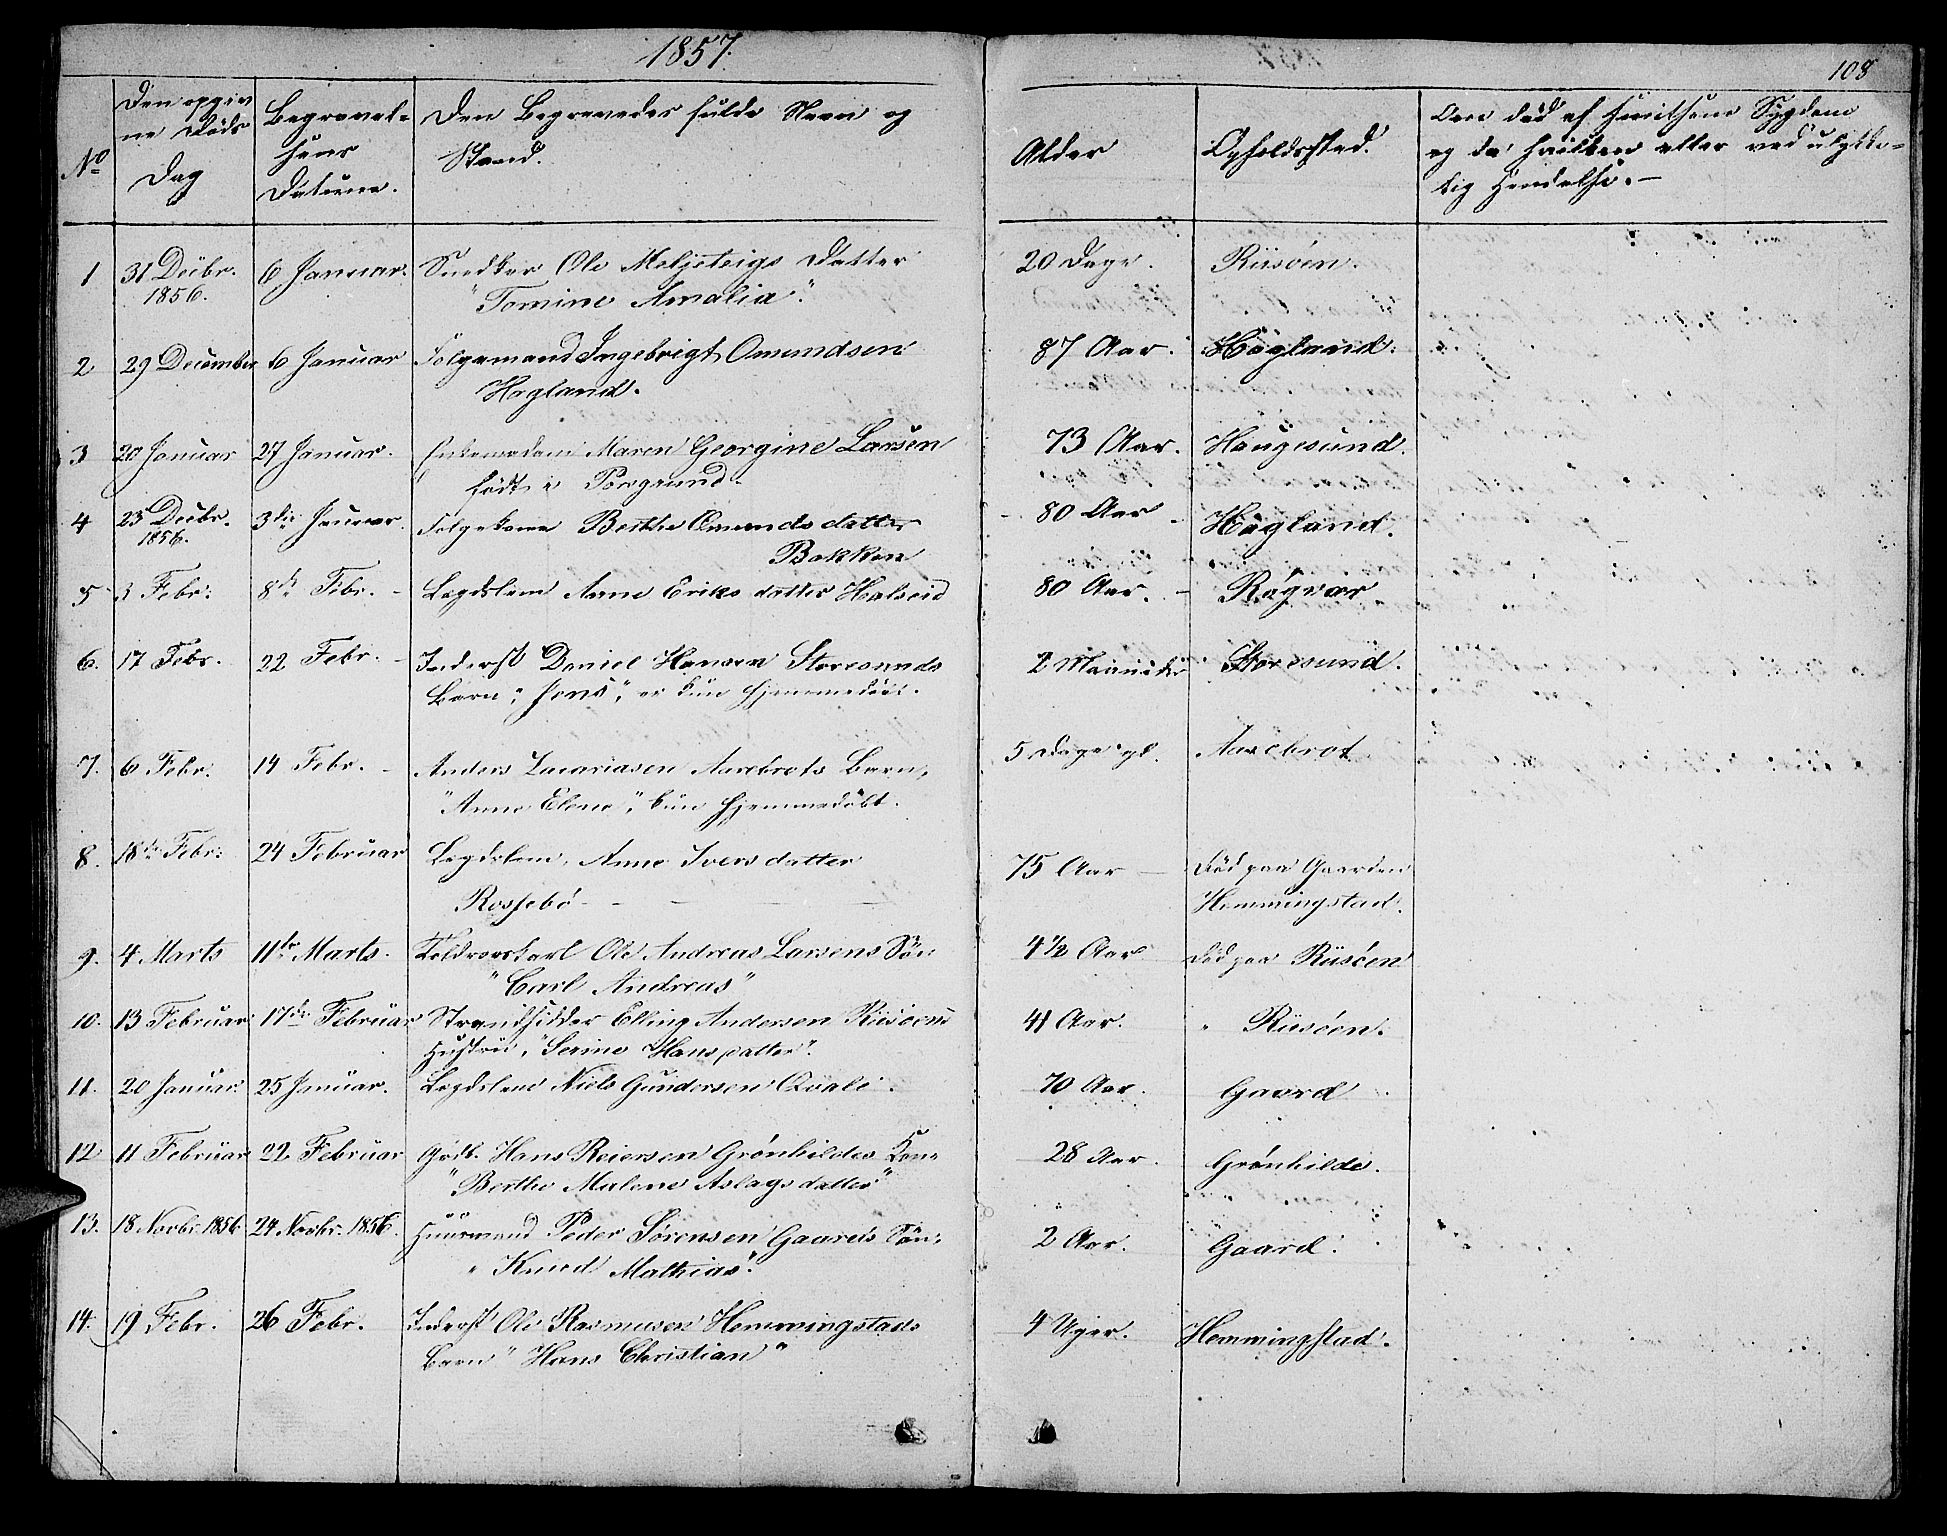 1857.
108
No
Den opgiv
ne Døds
Dag
Begravel-
sens
Datum.
Den Begravedes fulde Navn og
Stand.
Alder
Opholdssted.
Om død af smitsom Sygdom
og da hvilken eller ved ulykke-
lig Hendelse.-
1 31 Decbr. 1856. 6 Januar. Snedker Ole Meljeteigs Datter 20 Dage. Risøen.
"Tomine Amalia".
2 29 December 6 Januar Folgemand Ingebrigt Omundsen 87 Aar. Høgland.
Hogland.
3 20 Januar 27 Januar. Enkemadam Maren Georgine Larsen 73 Aar. Haugesund.
født i Porsgrund.
4 23 Decbr. 1856. 3die Januar. Folgekone Berthe Omundsdatter 80 Aar - Høgland.
Bakken
5 3 Febr. 8de Febr. - Legdslem Anne Eriksdatter Halseid 80 Aar. - Røgvær
6. 17 Febr. 22 Febr. - Inderst Daniel Hansen Storesunds 2 Maaneder Storesund.
Barn, "Jens", er kun hjemmedøbt.
7. 6 Febr. 14 Febr. - Anders Zacariasen Aarebrots Barn, 5 Dage gl. Aarebrot
"Anne Elene", kun hjemmedøbt.
8. 18de Febr. 24 Februar Legdslem, Anne Iversdatter 75 Aar - Død paa Gaarden
Rossebø - - - - Hemmingstad.
9. 4 Marts 11te Marts. Toldroerskarl Ole Andreas Larsens Søn 4 1/2 Aar Død paa Risøen
"Carl Andreas"
10. 13 Februar 17de Februar Strandsidder Elling Andersen Risøens 41 Aar. " Risøen.
Hustru, "Serine Hansdatter".
11. 20 Januar 25 Januar. Legdslem Niels Gundersen Qvale. 70 Aar. Gaard
12 11 Februar 22 Februar Gdb. Hans Reiersen Grønhildes Kone 28 Aar. Grønhilde.
"Berthe Malene Aslagsdatter"
13. 18 Novbr. 1856 24 Novbr. 1856. Huusmand Peder Sørensen Gaards Søn, 2 Aar. Gaard.
"Knud Mathias".
14. 19 Febr. 26 Febr. Inderst Ole Rasmusen Hemmingstads 4 Uger. Hemmingstad.
Barn "Hans Christian"